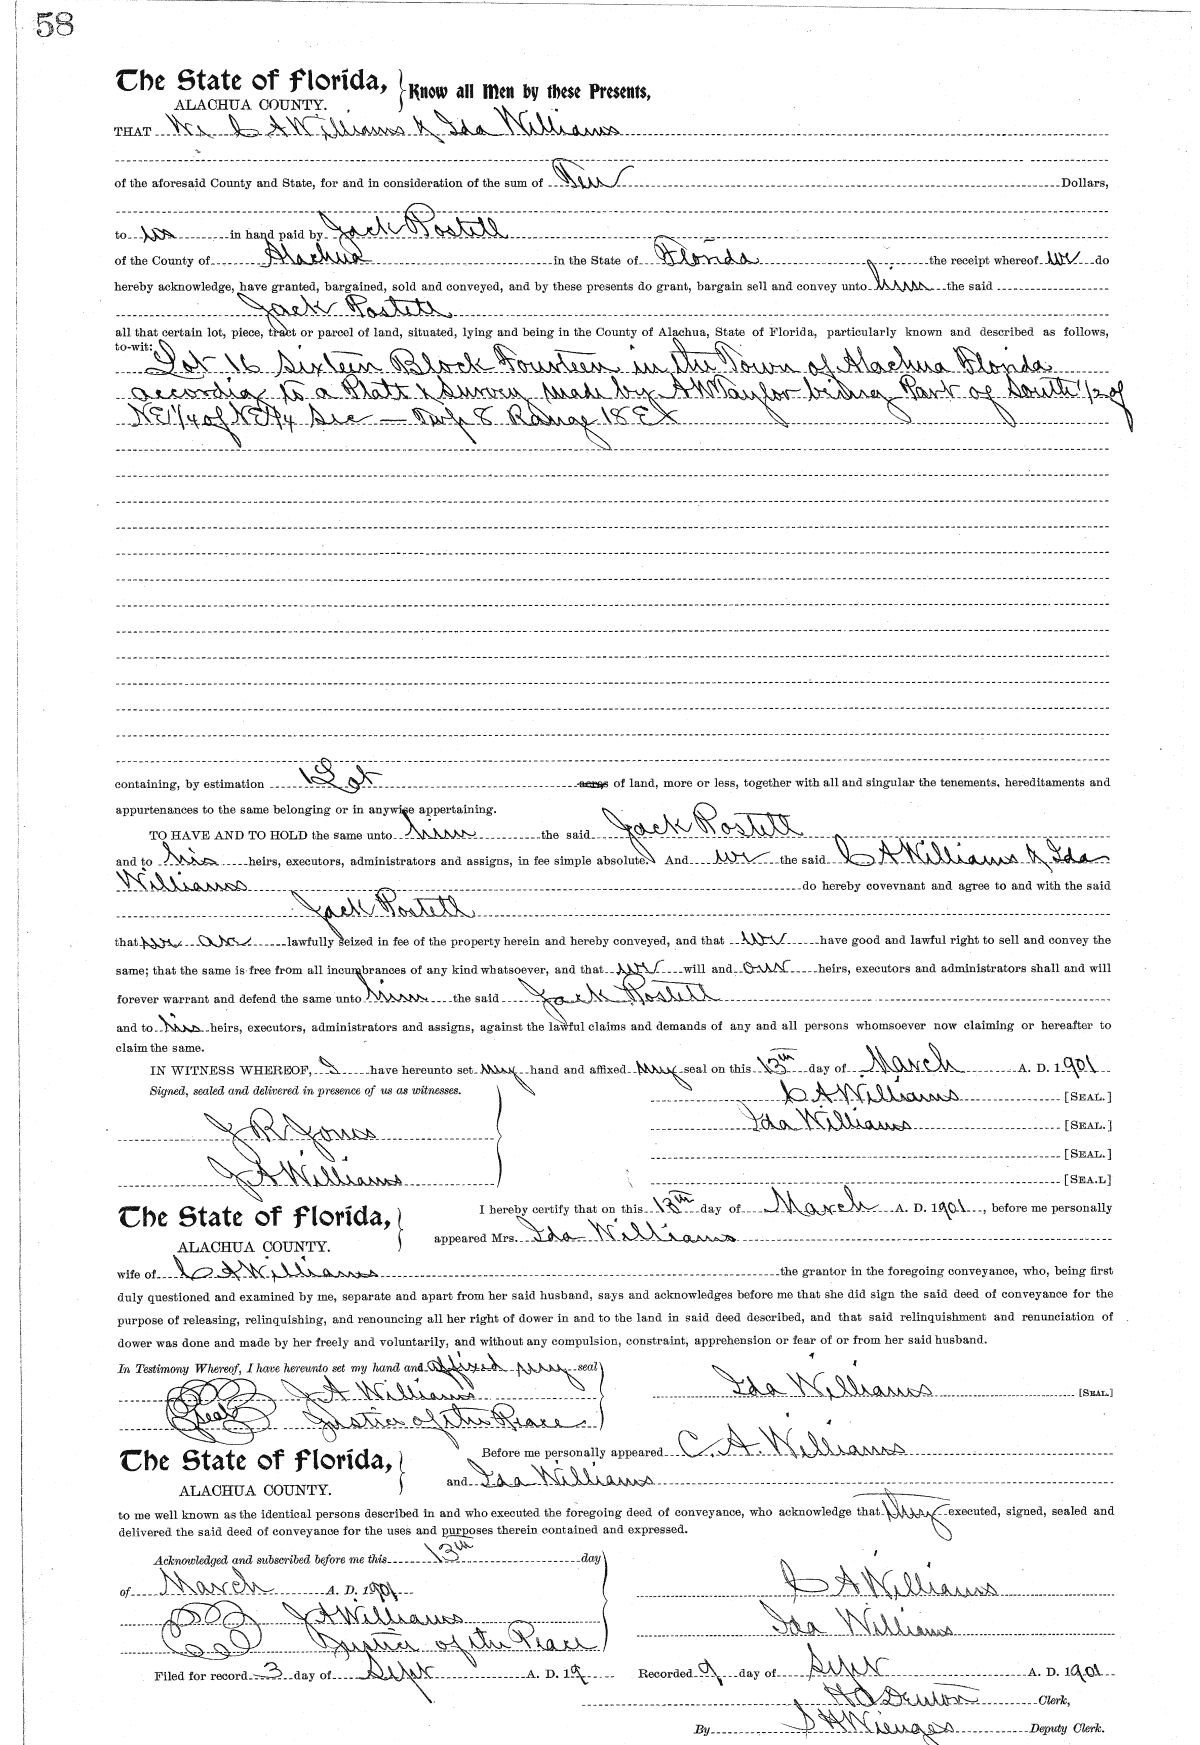 58
The State of Florida, Know all Men by these Presents,
ALACHUA COUNTY.
THAT We C A Williams & Ida Williams
of the aforesaid County and State, for and in consideration of the sum of Ten Dollars,
to us in hand paid by Jack Postell
of the County of Alachua in the State of Florida the receipt whereof we do
hereby acknowledge, have granted, bargained, sold and conveyed, and by these presents do grant, bargain sell and convey unto him the said
Jack Postell
all that certain lot, piece, tract or parcel of land, situated, lying and being in the County of Alachua, State of Florida, particularly known and described as follows,
to-wit: Lot 16 Sixteen Block Fourteen in the Town of Alachua Florida
accordig to a Platt & Survey made by A W Taylor being Part of South 1/2 of
NE 1/4 of NE 1/4 Sec — Twp 8 Range 18 E
containing, by estimation 1 Lot acres of land, more or less, together with all and singular the tenements, hereditaments and
appurtenances to the same belonging or in anywise appertaining.
TO HAVE AND TO HOLD the same unto him the said Jack Postell
and to his heirs, executors, administrators and assigns, in fee simple absolute. And we the said C A Williams & Ida
Williams do hereby covevnant and agree to and with the said
Jack Postell
that we are lawfully seized in fee of the property herein and hereby conveyed, and that we have good and lawful right to sell and convey the
same; that the same is free from all incumbrances of any kind whatsoever, and that we will and our heirs, executors and administrators shall and will
forever warrant and defend the same unto him the said Jack Postell
and to his heirs, executors, administrators and assigns, against the lawful claims and demands of any and all persons whomsoever now claiming or hereafter to
claim the same.
IN WITNESS WHEREOF, I have hereunto set my hand and affixed my seal on this 13th day of March A. D. 1901
Signed, sealed and delivered in presence of us as witnesses. C A Williams [SEAL.]
J R Jones Ida Williams [SEAL.]
[SEAL.]
J A Williams [SEA.L]
The State of Florida, I hereby certify that on this 13th day of March A. D. 1901, before me personally
ALACHUA COUNTY. appeared Mrs. Ida Williams
wife of C A Williams the grantor in the foregoing conveyance, who, being first
duly questioned and examined by me, separate and apart from her said husband, says and acknowledges before me that she did sign the said deed of conveyance for the
purpose of releasing, relinquishing, and renouncing all her right of dower in and to the land in said deed described, and that said relinquishment and renunciation of
dower was done and made by her freely and voluntarily, and without any compulsion, constraint, apprehension or fear of or from her said husband.
In Testimony Whereof, I have hereunto set my hand and affixed my seal
J A Williams Ida Williams [SEAL.]
Seal Justice of the Peace
The State of Florida, Before me personally appeared C. A. Williams
ALACHUA COUNTY. and Ida Williams
to me well known as the identical persons described in and who executed the foregoing deed of conveyance, who acknowledge that they executed, signed, sealed and
delivered the said deed of conveyance for the uses and purposes therein contained and expressed.
Acknowledged and subscribed before me this 13th day
of March A. D. 1901 C A Williams
J A Williams Ida Williams
Justice of the Peace
Filed for record 3 day of Sept A. D. 19 Recorded 9 day of Sept A. D. 1901
H C Denton Clerk,
By S H Wienges Deputy Clerk.